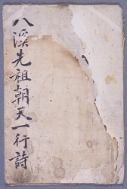 八溪先祖朝天一行詩